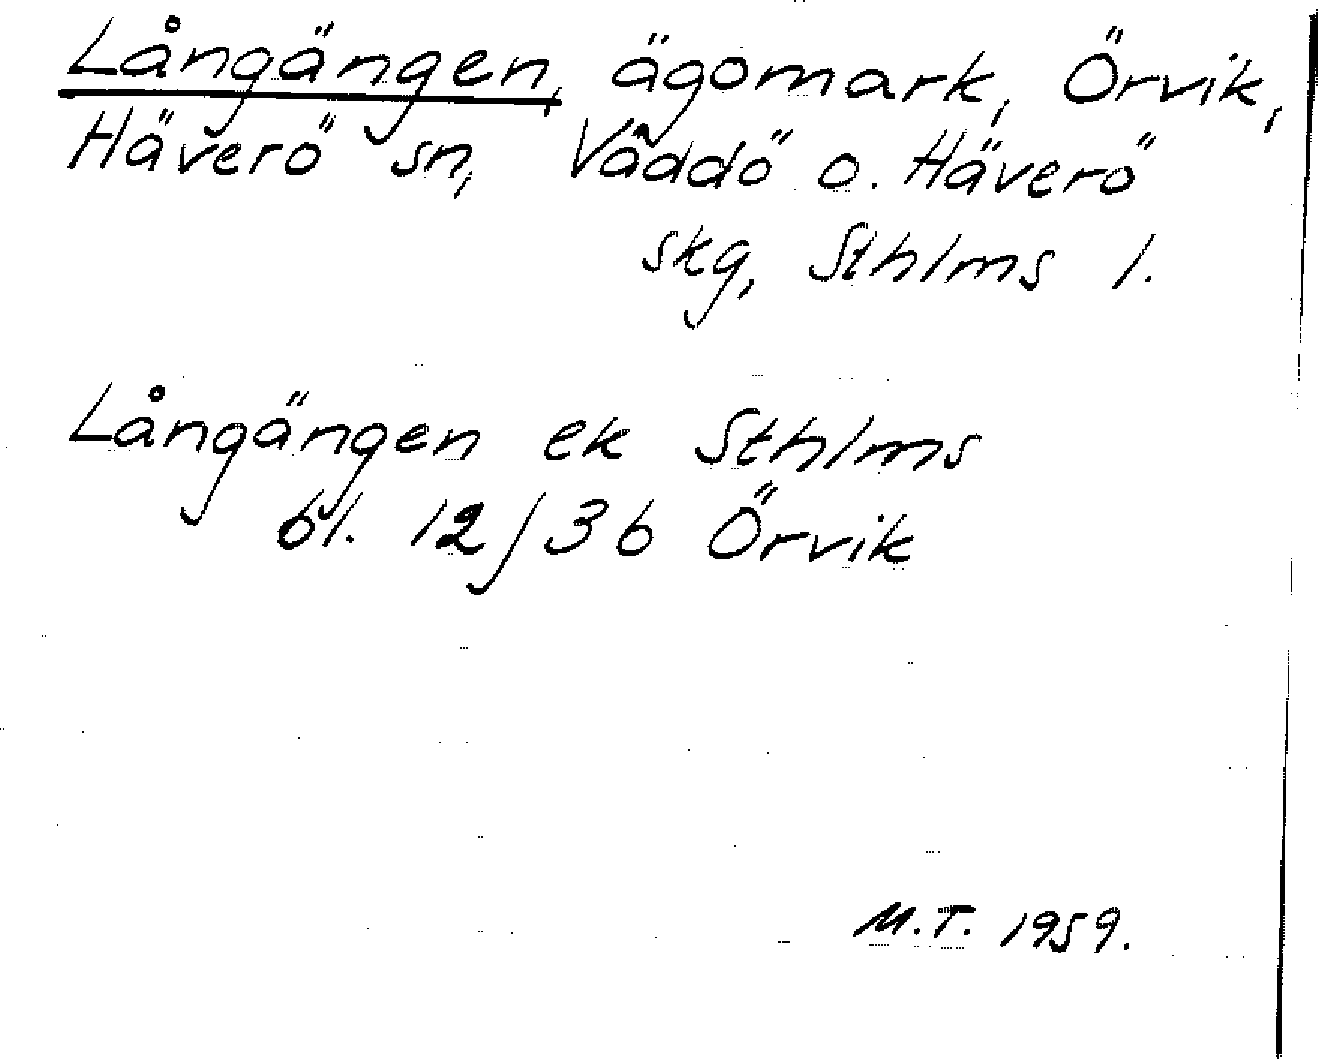 Långängen, ägomark, Örvik,
Häverö sn, Väddö o. Häverö
skg, Sthlms l.
Långängen ek Sthlms
bl. 12/36 Örvik
M.T. 1959.